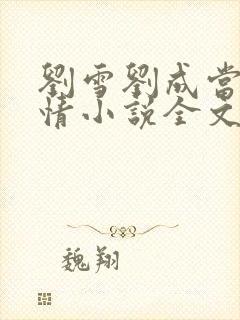 劉雪劉成當
情小說全文
魏翔